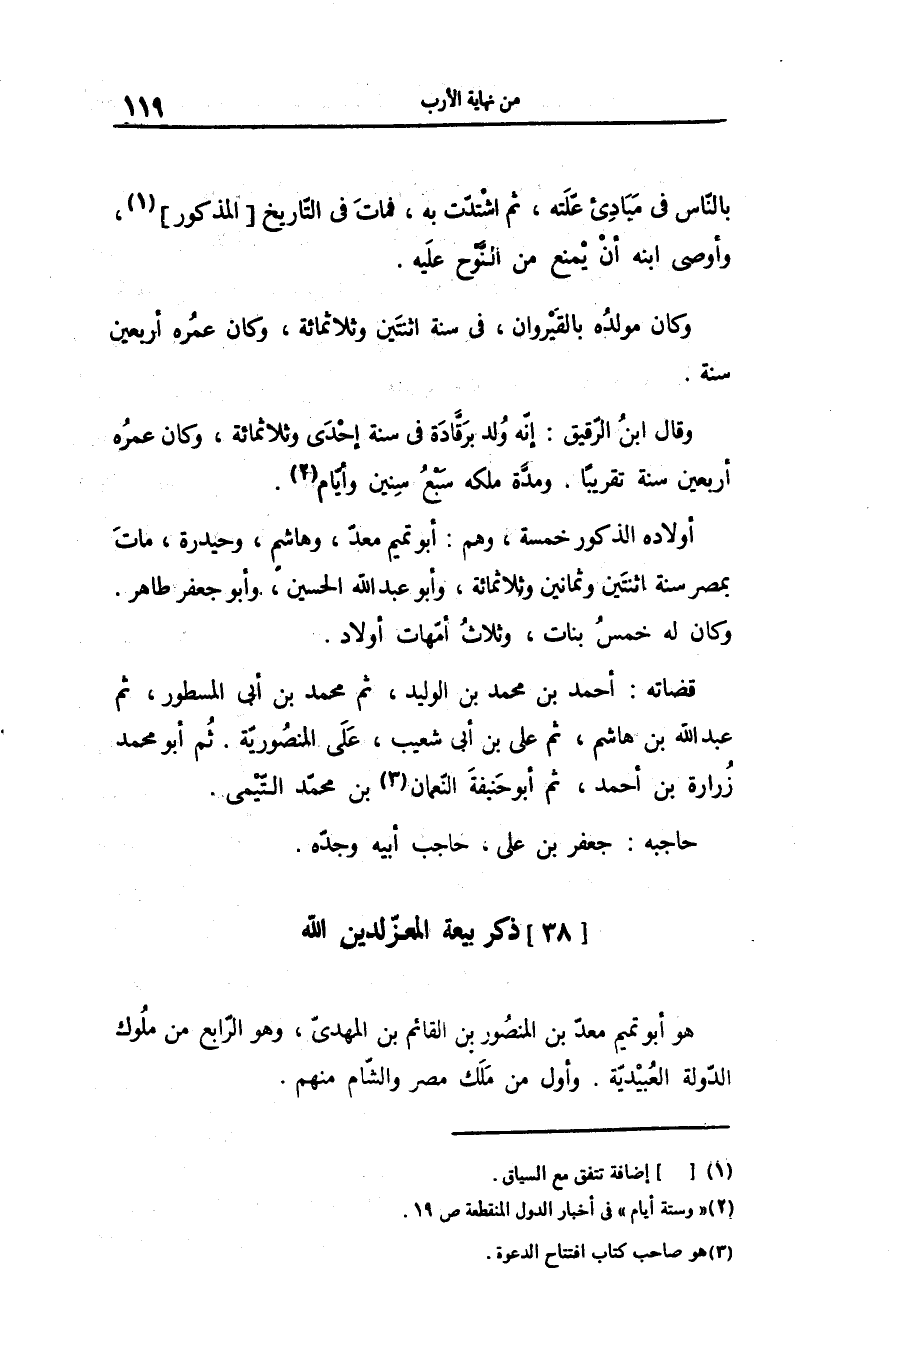 من نهاية الأرب
١١٩
بالنّاس فى مَبَادِئ عَلَّته ، ثم اشْتدّت به ، فماتَ فى التّاريخ [ المذكور ] (١) ،
وأوصى ابنه أنْ يْمنع من النَّوْح عليَه .
وكان مولدُه بالقَيْروان ، فى سنة اثنتَين وثلاثمائة ، وكان عمُره أربعين
سنة .
وقال ابنُ الرّقيق : إنّه وُلد برَقَّادَة فى سنة إحْدَى وثلاثمائة ، وكان عمرُه
أربعين سنة تقريبًا . ومدَّة ملكه سَبْعُ سِنين وأيّام(٢) .
أولاده الذكور خمسة ، وهم : أبو تميم معدّ ، وهاشم ، وحيدرة ، ماتَ
بمصر سنة اثنتَين وثمانين وثلاثمائة ، وأبو عبدالله الحسين ، وأبو جعفر طاهر .
وكان له خمسُ بنات ، وثلاثُ أمّهات أولاد .
قضاته : أحمد بن محمد بن الوليد ، ثم محمد بن أبى المسطور ، ثم
عبدالله بن هاشم ، ثم على بن أبى شعيب ، عَلَى المنصُوريّة . ثُم أبو محمد
زُرارة بن أحمد ، ثم أبوحَنيفةَ النّعمان(٣) بن محمّد التَّيْمى .
حاجبه : جعفر بن على ، حاجب أبيه وجدّه .
[ ٣٨ ] ذكر بيعة المعزّ لدين الله
هو أبو تميم معدّ بن المنصُور بن القائم بن المهدىّ ، وهو الرّابع من ملُوك
الدّولة العُبيْديّة . وأول من مَلَك مصر والشّام منهم .
(١) [ ] إضافة تتفق مع السياق .
(٢)« وستة أيام » فى أخبار الدول المنقطعة ص ١٩ .
(٣)هو صاحب كتاب افتتاح الدعوة .